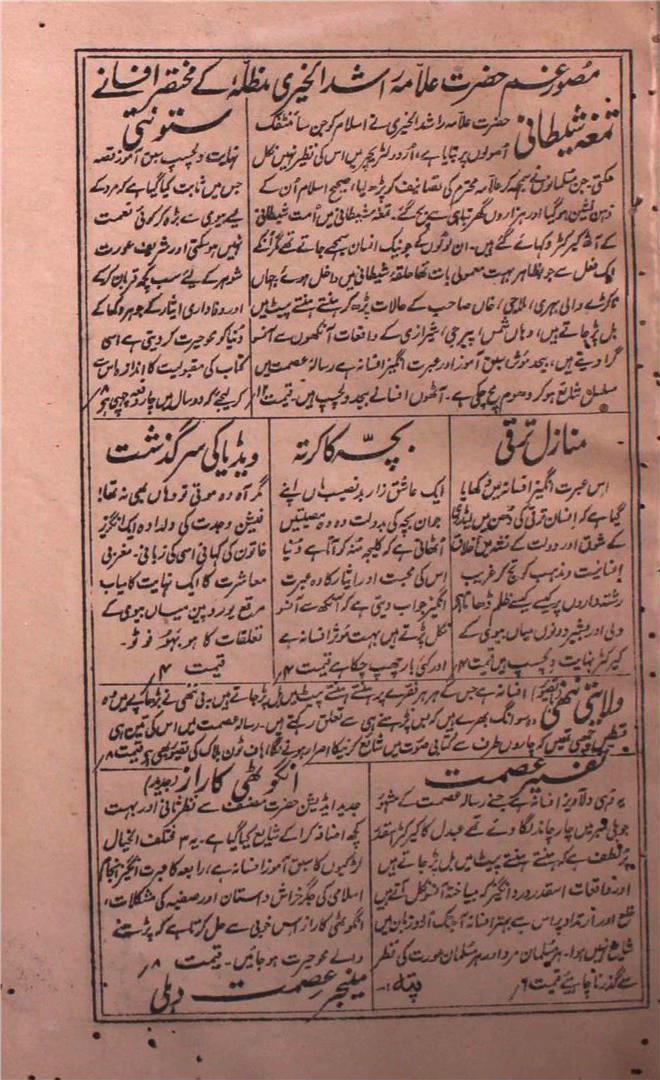 مصور غم حضرت علامہ راشد الخیری مدظلہ کے مختصر افسانے
تمغہ شیطانی
حضرت علامہ راشد الخیری نے اسلام کو جن سائنٹفک
اصولوں پر بتایا ہے، اُردو لٹریچر میں اس کی نظیر نہیں مل
سکتی۔ جن مسلمانوں نے سمجھ کر علامہ محترم کی تصانیف کو پڑھ لیا، صحیح اسلام اُن کے
ذہن نشین ہو گیا اور ہزاروں گھر تباہی سے بچ گئے۔ تمغہ شیطانی میں اُمت شیطانی
کے آٹھ کیرکٹر دکھائے گئے ہیں۔ ان لوگوں کے جو نیک انسان سمجھے جاتے تھے مگر اُنکے
ایک فعل سے جو بظاہر بہت معمولی بات تھا حلقہ شیطانی میں داخل ہوئے جہاں
ناکڑے والی بہری، ملاجی، خاں صاحب کے حالات پڑھ کر ہنستے ہنستے پیٹ میں
بل پڑ جاتے ہیں، وہاں شمس، پیرجی، شیرازی کے واقعات آنکھوں سے آنسو
گرا دیتے ہیں، بیحد مؤثر سبق آموز اور عبرت انگیز افسانہ ہے رسالہ عصمت میں
مسلسل شائع ہو کر دھوم مچ چکی ہے۔ آٹھوں افسانے بیحد دلچسپ ہیں۔ قیمت ۱۲؍
ستونتی
نہایت دلچسپ سبق آموز قصہ
جس میں ثابت کیا گیا ہے کہ مرد کے
لیے بیوی سے بڑھ کر کوئی نعمت
نہیں ہوسکتی اور شریف عورت
شوہر کے لیے سب کچھ قربان کر کے
اور وفاداری ایثار کے جوہر دکھا کے
دُنیا کو محو حیرت کر دیتی ہے اسی
کتاب کی مقبولیت کا اندازہ اس سے
کر لیجئے کہ دو سال میں چار دفعہ چھپی ہے ۸؍
منازل ترقی
اس عبرت انگیز افسانہ میں دکھایا
گیا ہے کہ انسان ترقی کی دُھن میں لیڈری
کے شوق اور دولت کے نشہ میں اخلاق
انسانیت و مذہب کو تج کر غریب
رشتہ داروں پر کیسے کیسے ظلم ڈھاتا ہے
ولی اور بشیر دونوں میاں بیوی کے
کیرکٹر نہایت دلچسپ ہیں قیمت ۴؍
بچہ کا کرتہ
ایک عاشق زار بدنصیب ماں اپنے
جوان بچہ کی بدولت وہ وہ مصیبتیں
اُٹھاتی ہے کہ کلیجہ منہ کو آتا ہے دُنیا
اس کی محبت اور ایثار کا وہ عبرت
انگیز جواب دیتی ہے کہ آنکھ سے آنسو
نکل پڑتے ہیں بہت مؤثر افسانہ ہے
اور کئی بار چھپ چکا ہے قیمت ۴؍
ویڈیا کی سرگذشت
گر آہ وہ موتی تو وہاں بھی نہ تھا!
فیشن و جدت کی دلدادہ ایک انگریز
خاتون کی کہانی اسی کی زبانی۔ مغربی
معاشرت کا ایک نہایت کامیاب
مرقع یوروپین میاں بیوی کے
تعلقات کا ہو بہو فوٹو۔
قیمت ۴؍
ولایتی ننھی
(باتصویر) افسانہ ہے جس کے ہر ہر فقرے پر ہنستے ہنستے پیٹ میں بل پڑ جاتے ہیں۔ بی ننھی نے بڑھاپے میں وہ
وہ سوانگ بھرے ہیں کہ بس پڑھنے ہی سے تعلق رکھتے ہیں۔ رسالہ عصمت میں اس کی تین ہی
قسطیں چھپی تھیں کہ چاروں طرف سے کتابی صورت میں شائع کرنیکا اصرار ہونے لگا، ہاف ٹون بلاک کی تصویر بھی ہے قیمت ۸؍
تفسیر عصمت
یہ وہی دلآویز افسانہ ہے جسنے رسالہ عصمت کے مشہور
جوبلی نمبر میں چار چاند لگا دئے تھے عبدل کا کیرکٹر اسقدر
پُر لطف ہے کہ ہنستے ہنستے پیٹ میں بل پڑ جاتے ہیں
اور واقعات اسقدر درد انگیز کہ بیساختہ آنسو نکل آتے ہیں
خلع اور ارتداد پر اس سے بہتر افسانہ آجتک اُردو زبان میں
شایع نہیں ہوا۔ ہر مسلمان مرد اور ہر مسلمان عورت کی نظر
سے گذرنا چاہئے قیمت ۶؍
پتہ:۔
انگوٹھی کا راز (جدید)
جدید ایڈیشن حضرت مصنف سے نظر ثانی اور بہت
کچھ اضافہ کرا کے شایع کیا گیا ہے۔ یہ ۳ مختلف الخیال
لڑکیوں کا سبق آموز افسانہ ہے، رابعہ کا عبرت انگیز انجام
اسلامی کی جگر خراش داستان اور صفیہ کی مشکلات،
انگوٹھی کا راز اس خوبی سے حل کرتا ہے کہ پڑھنے
والے محو حیرت ہو جائیں۔ قیمت ۸؍
مینجر عصمت دہلی